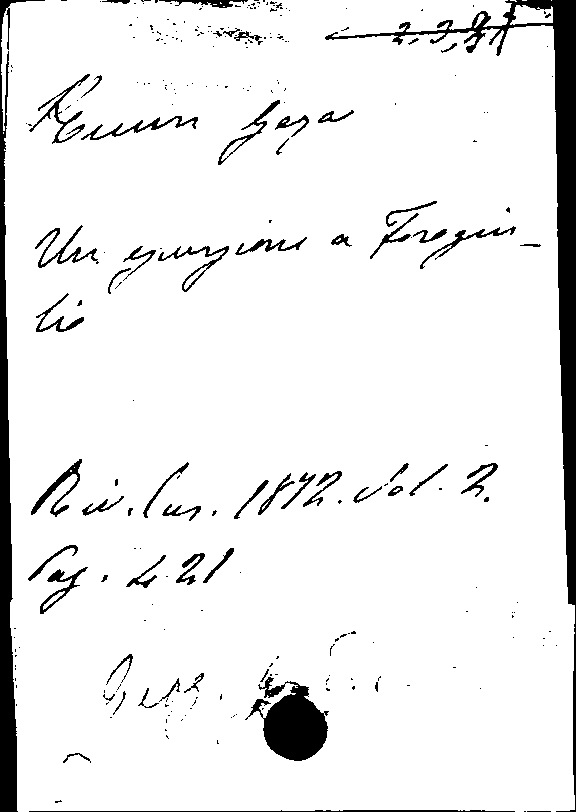 Kuun Geza
Un escurzione a Forogiu-
lio
Riv. Eur. 1872. Vol. 2.
Pag. 421